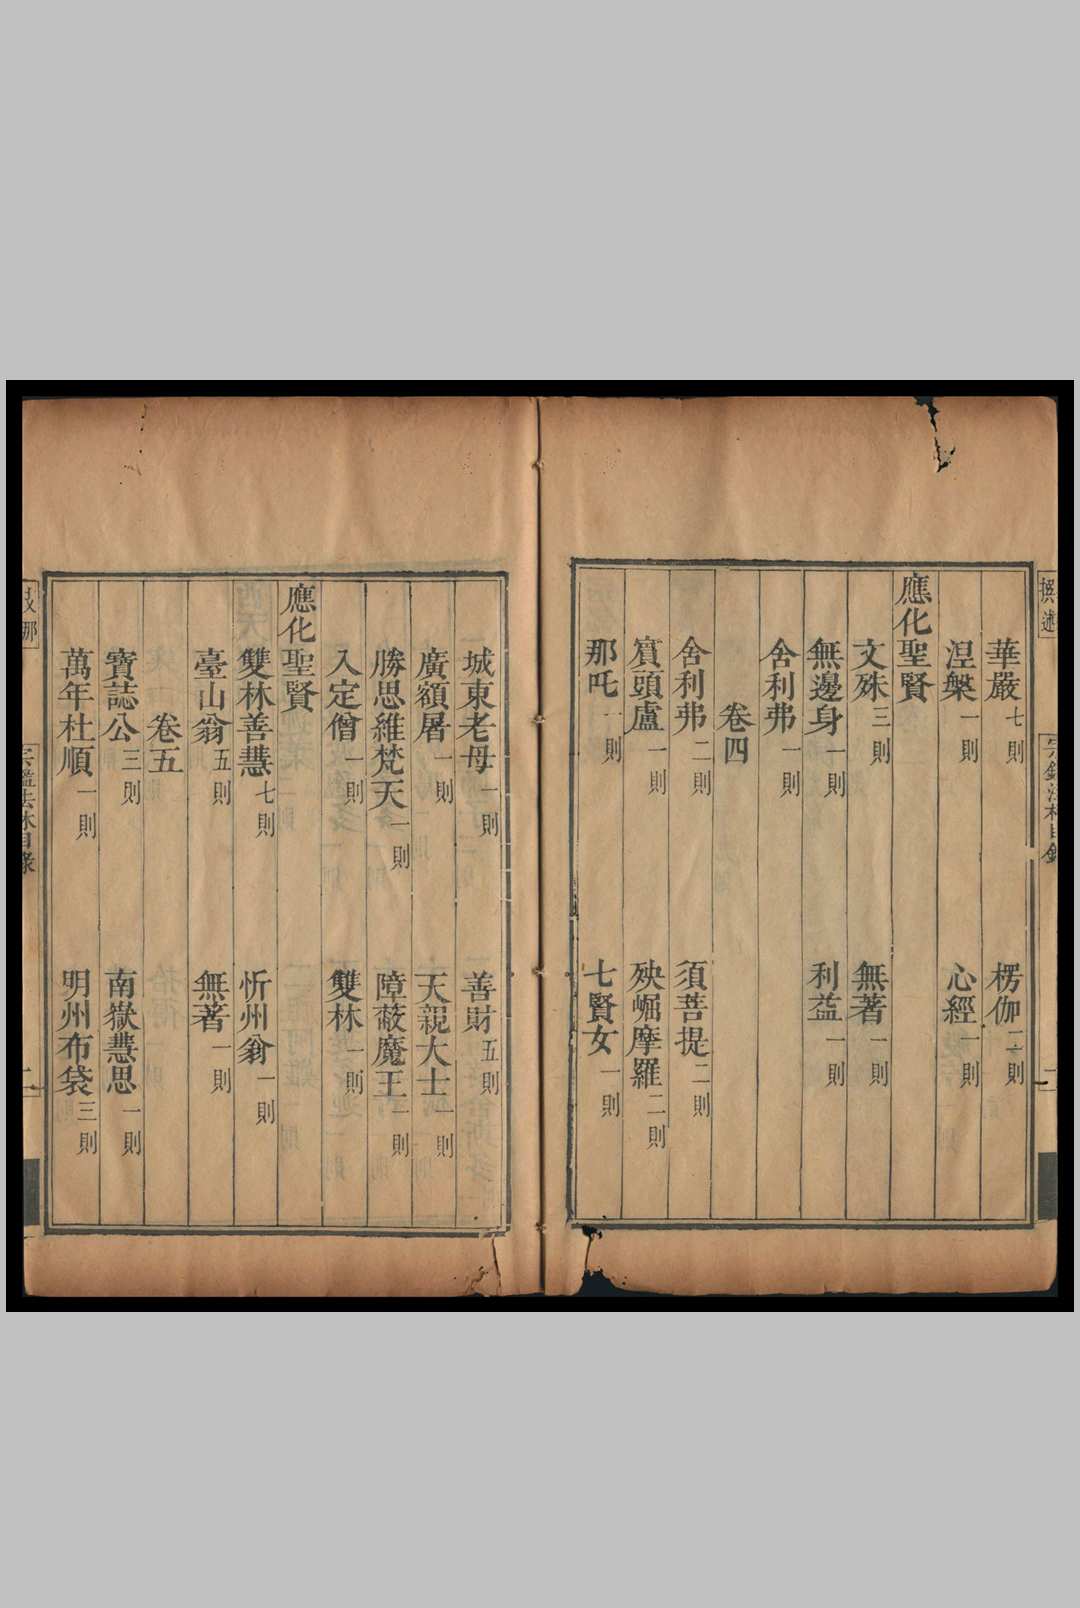 撰述
華嚴七則 楞伽二則
涅槃一則 心經一則
應化聖賢
文殊三則 無著一則
無邊身一則 利益一則
舍利弗一則
卷四
舍利弗二則 須菩提二則
賓頭盧一則 殃崛摩羅二則
那吒一則 七賢女一則
城東老母一則 善財五則
廣額屠一則 天親大士一則
勝思維梵天一則 障蔽魔王一則
入定僧一則 雙林一則
應化聖賢
雙林善慧七則 忻州翁一則
臺山翁五則 無著一則
卷五
寶誌公三則 南嶽慧思一則
萬年杜順一則 明州布袋三則
宗鑑法林目錄